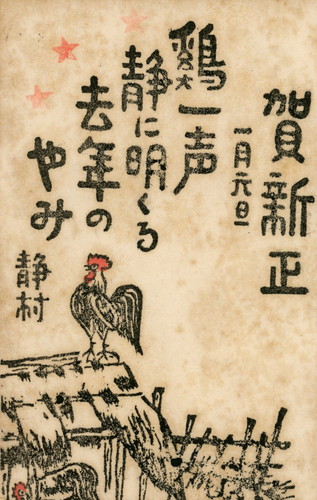 賀新正
一月元旦
鷄一声
静に明くる
去年の
やみ
静村